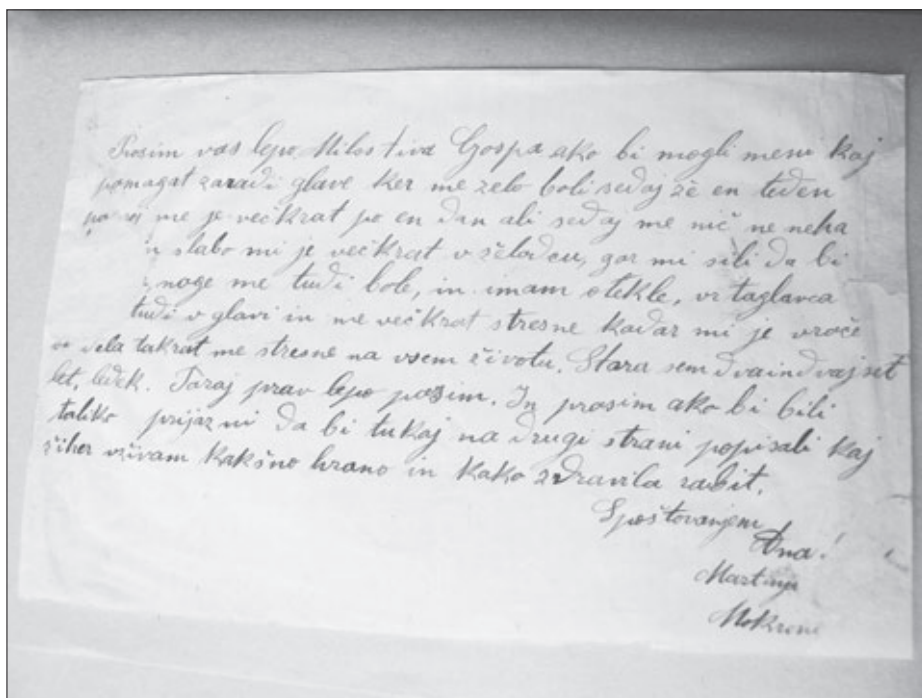 Prosim vas lepo Milostiva Gospa ako bi mogli meni kaj
pomagat zaradi glave ker me zelo boli sedaj že en teden
me je večkrat po en dan ali sedaj me nič ne neha
slabo mi je večkrat v želodcu, gor mi sili da bi
noge me tudi bole, in imam otekle, vrtaglavca
tudi v glavi in me večkrat stresne kadar mi je vroče
dela takrat me stresne na vsem životu. Stara sem dvaindvajset
let, ledek. Toraj prav lepo prosim. In prosim ako bi bili
toliko prijazni da bi tukaj na drugi strani popisali kaj
žiher vživam kakšno hrano in kako zdravila rabit.
Spoštovanjem
Ana!
Martinja